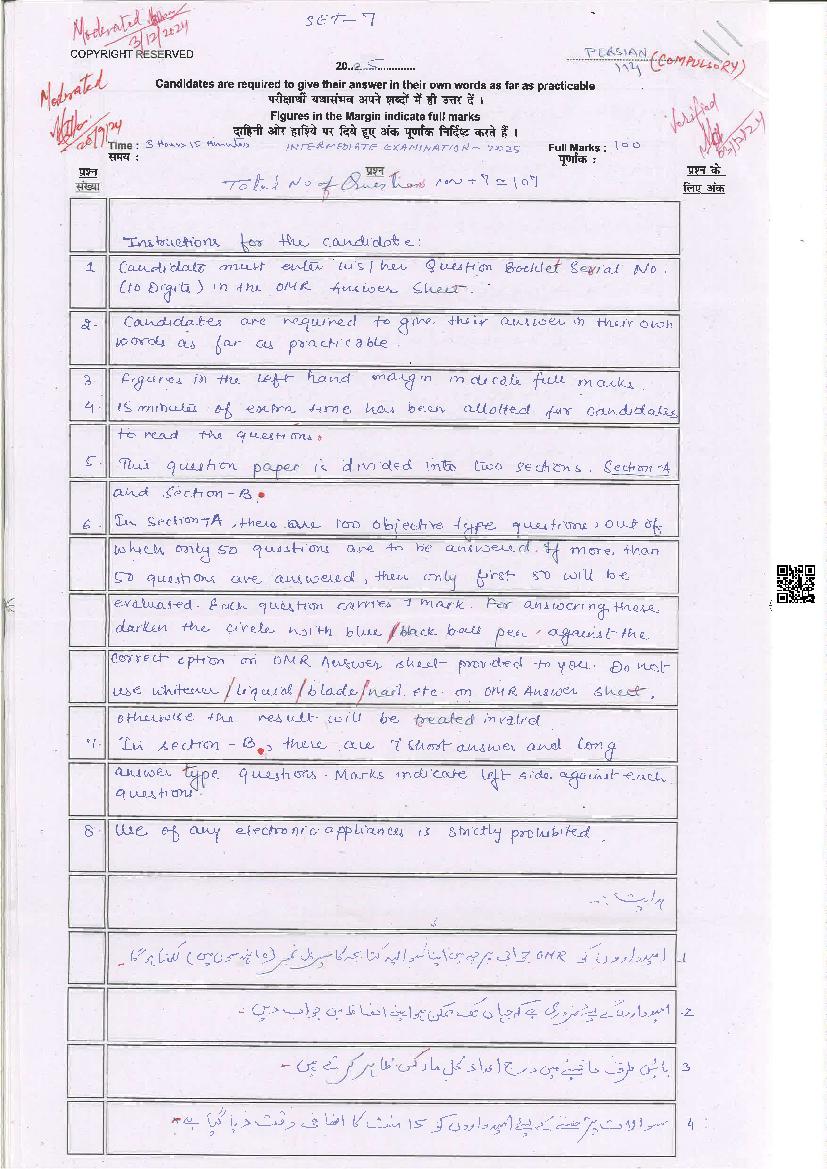 SET-7
Moderated
3/12/2024
COPYRIGHT RESERVED
PERSIAN
114 (COMPULSORY)
2025
Candidates are required to give their answer in their own words as far as practicable
परीक्षार्थी यथासंभव अपने शब्दों में ही उत्तर दें ।
Figures in the Margin indicate full marks
दाहिनी ओर हाशिये पर दिये हुए अंक पूर्णांक निर्दिष्ट करते हैं ।
Moderated
Verified
Time : 3 Hours 15 Minutes INTERMEDIATE EXAMINATION - 2025 Full Marks : 100
समय : पूर्णांक :
प्रश्न संख्या प्रश्न प्रश्न के लिए अंक
Total No of Questions 100 + 7 = 107
Instructions for the candidate:
1 Candidate must enter his/her Question Booklet Serial No.
(10 Digits) in the OMR Answer Sheet.
2. Candidates are required to give their answer in their own
words as far as practicable.
3 Figures in the left hand margin indicate full marks.
4 15 minutes of extra time has been allotted for candidates
to read the questions.
5. This question paper is divided into two sections. Section-A
and Section-B.
6. In Section-A, there are 100 objective type questions, out of
which only 50 questions are to be answered. If more than
50 questions are answered, then only first 50 will be
evaluated. Each question carries 1 mark. For answering these
darken the circle with blue/black ball pen against the
correct option on OMR Answer sheet provided to you. Do not
use whitener/liquid/blade/nail etc. on OMR Answer sheet,
otherwise the result will be treated invalid
7. In section-B, there are 7 short answer and long
answer type questions. Marks indicate left side against each
questions.
8. Use of any electronic appliances is strictly prohibited.
ہدایت :۔
1 امیدواروں کو OMR جوابی پرچہ میں اپنا سوالیہ کتابچہ کا سیریل نمبر لکھنا ہوگا۔
2. امیدواروں کے لیے ضروری ہے کہ جہاں تک ممکن ہو اپنے الفاظ میں جواب دیں۔
3 بائیں طرف حاشیے میں درج اعداد کل مارکس ظاہر کرتے ہیں۔
4 سوالات پڑھنے کے لیے امیدواروں کو 15 منٹ کا اضافی وقت دیا گیا ہے۔